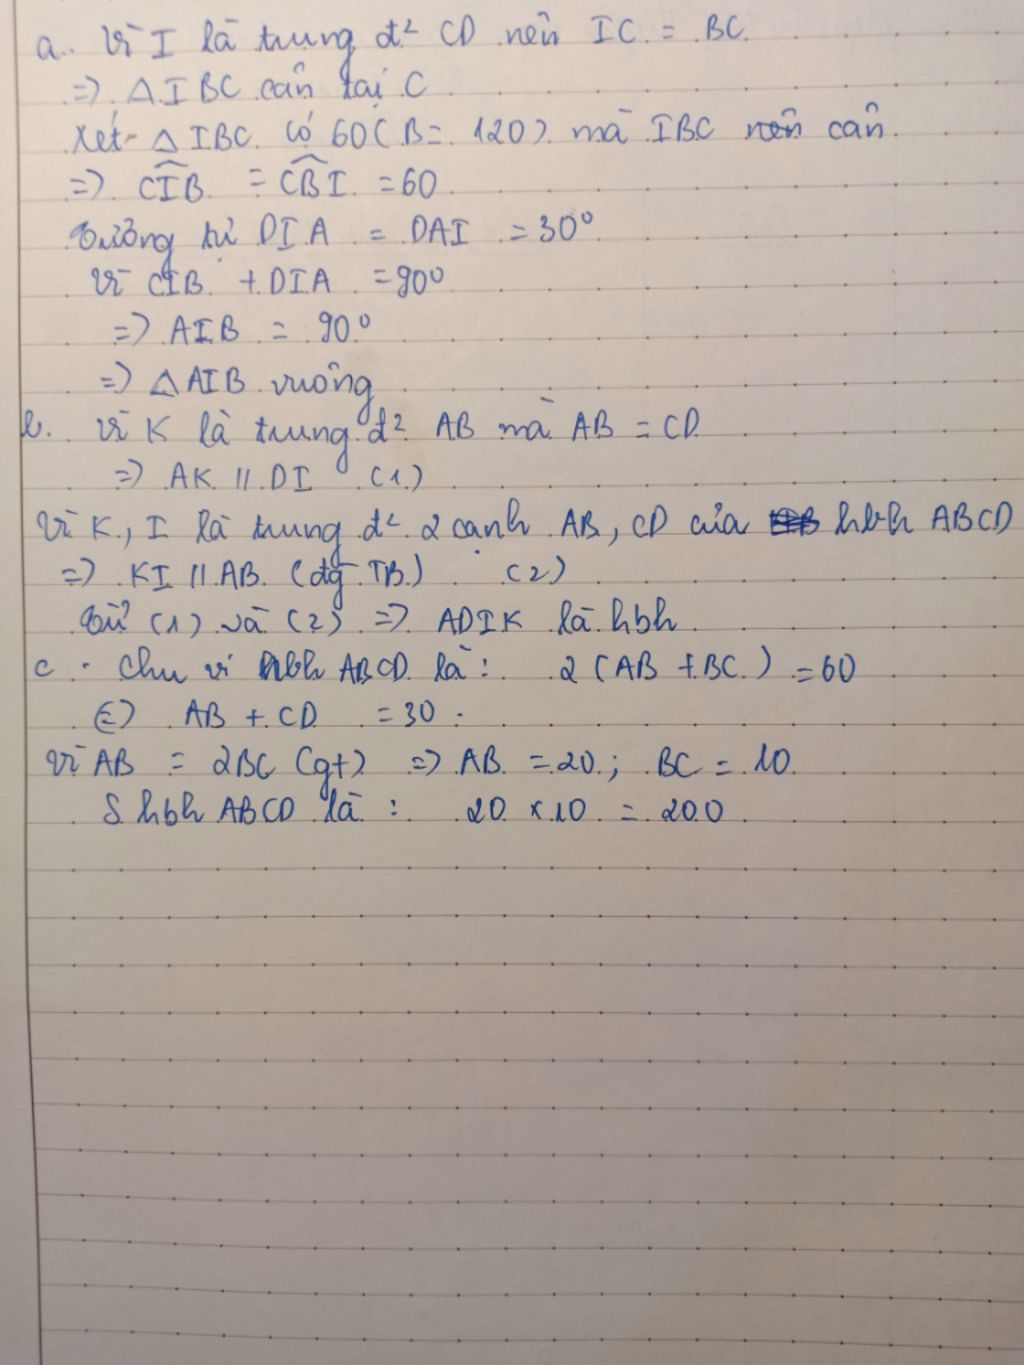 a. Vì I là trung đ² CD nên IC = BC
=> △IBC cân tại C
Xét △IBC có 60 (B = 120) mà IBC cân
=> CIB = CBI = 60
Tương tự DIA = DAI = 30°
Vì CIB + DIA = 90°
=> AIB = 90°
=> △AIB vuông
b. Vì K là trung đ² AB mà AB = CD
=> AK // DI (1)
Vì K, I là trung đ² 2 cạnh AB, CD của hbh ABCD
=> KI // AB (đg TB) (2)
Từ (1) và (2) => ADIK là hbh
c. Chu vi hbh ABCD là: 2 (AB + BC) = 60
(=) AB + CD = 30
Vì AB = 2BC (gt) => AB = 20; BC = 10
S hbh ABCD là: 20 x 10 = 200